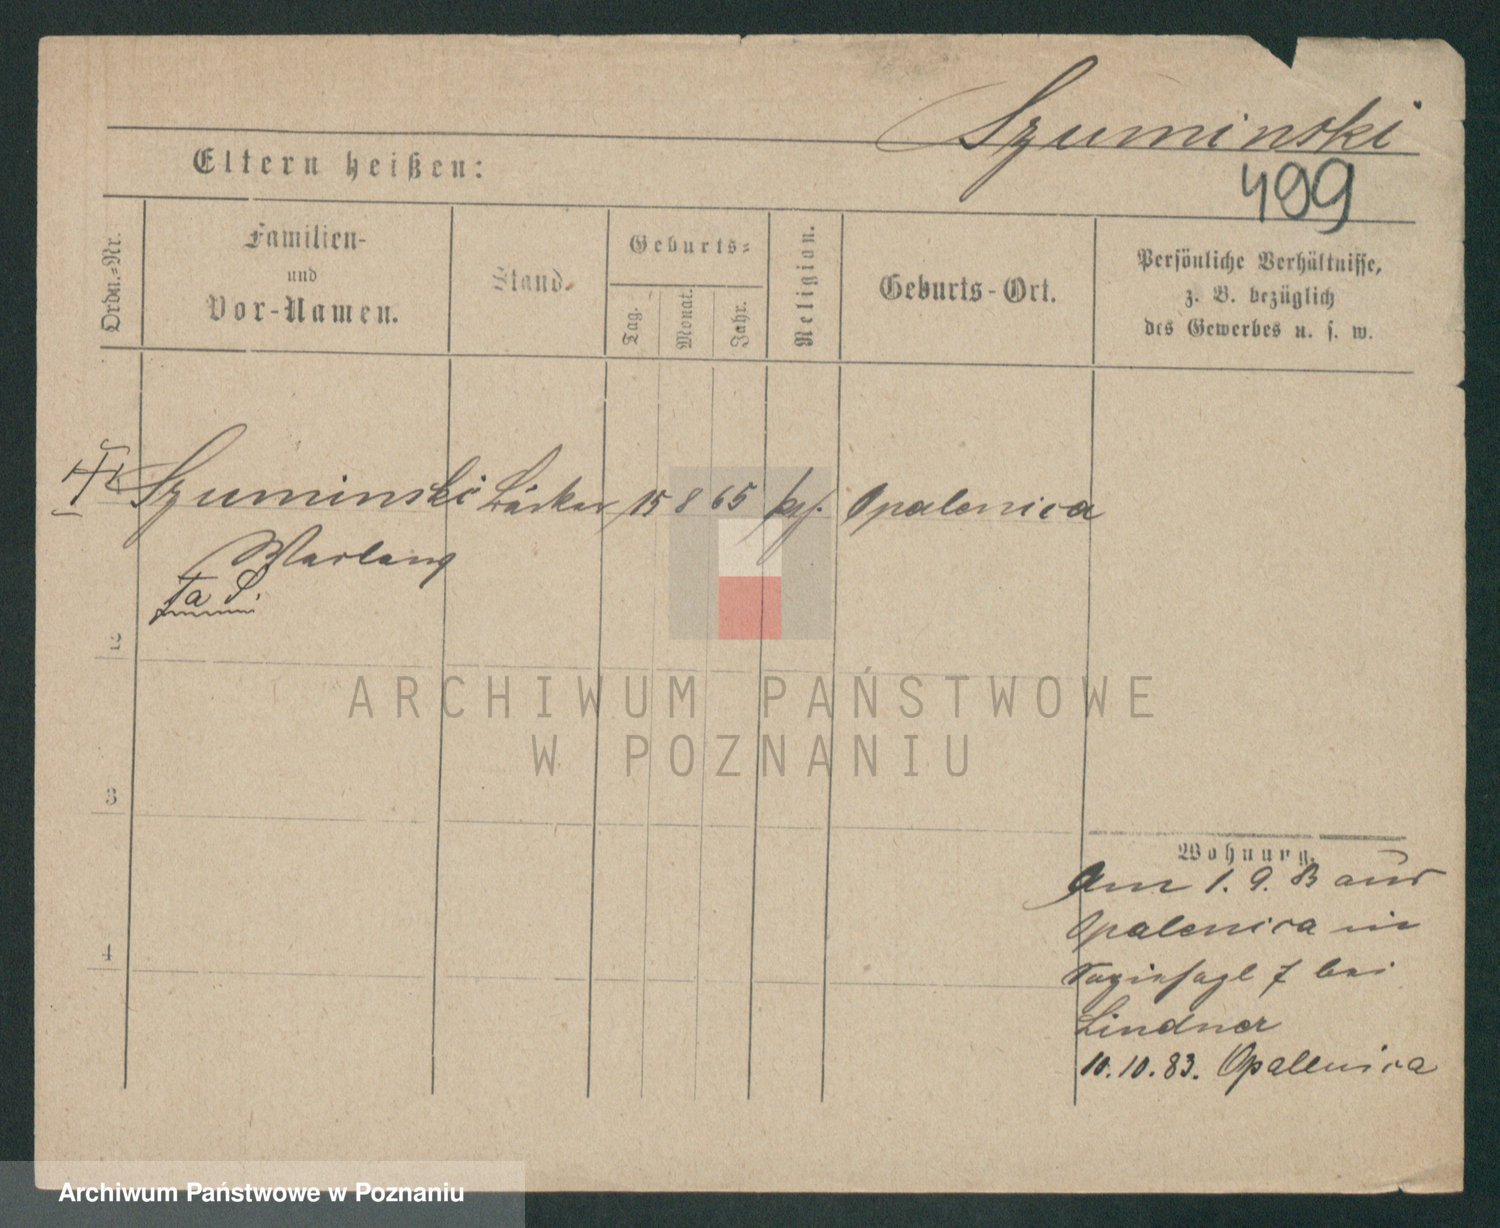 Szuminski
Eltern heißen:
499
Ordn.-Nr.
Familien-
und
Vor-Namen.
Stand.
Geburts-
Tag.
Monat.
Jahr.
Religion.
Geburts-Ort.
Persönliche Verhältnisse,
z. B. bezüglich
des Gewerbes u. s. w.
Szuminski Bäcker 15 8 65 Opalenica
2
ARCHIWUM PAŃSTWOWE
W POZNANIU
3
Wohnung.
Am 1. 9. 83 aus
Opalenica in
7 bei
4
Lindner
10. 10. 83. Opalenica
Archiwum Państwowe w Poznaniu